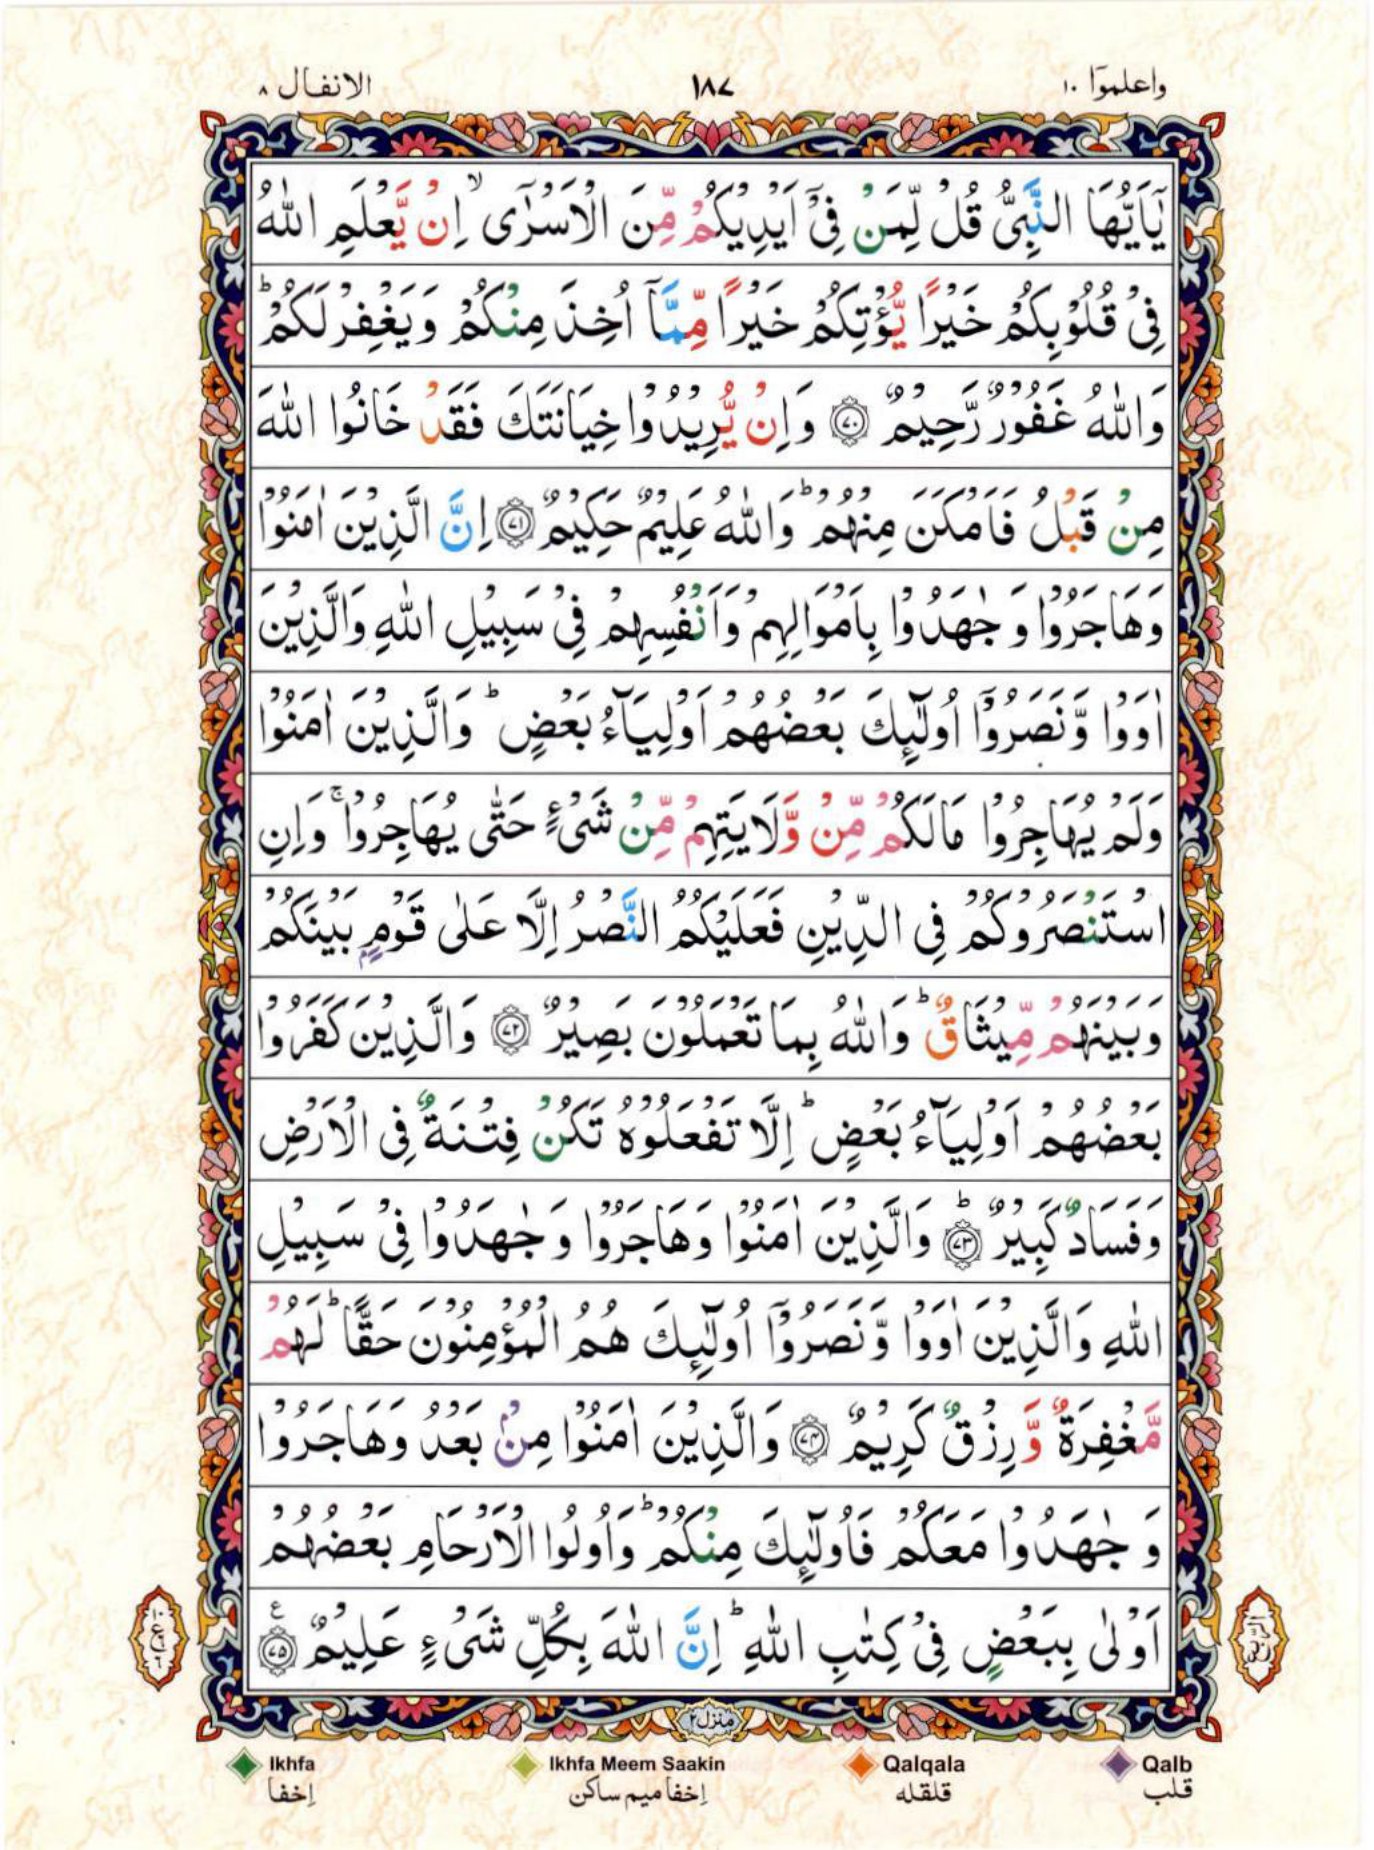 واعلموۤا ١٠
١٨٧
الانفال ٨
يٰۤاَيُّهَا النَّبِىُّ قُلْ لِّمَنْ فِىْۤ اَيْدِيْكُمْ مِّنَ الْاَسْرٰٓى ۙ اِنْ يَّعْلَمِ اللّٰهُ
فِىْ قُلُوْبِكُمْ خَيْرًا يُّؤْتِكُمْ خَيْرًا مِّمَّاۤ اُخِذَ مِنْكُمْ وَيَغْفِرْ لَكُمْ ؕ
وَاللّٰهُ غَفُوْرٌ رَّحِيْمٌ ﴿۷۰﴾ وَاِنْ يُّرِيْدُوْا خِيَانَتَكَ فَقَدْ خَانُوا اللّٰهَ
مِنْ قَبْلُ فَاَمْكَنَ مِنْهُمْ ؕ وَاللّٰهُ عَلِيْمٌ حَكِيْمٌ ﴿۷۱﴾ اِنَّ الَّذِيْنَ اٰمَنُوْا
وَهَاجَرُوْا وَ جٰهَدُوْا بِاَمْوَالِهِمْ وَاَنْفُسِهِمْ فِىْ سَبِيْلِ اللّٰهِ وَالَّذِيْنَ
اٰوَوْا وَّنَصَرُوْۤا اُولٰٓئِكَ بَعْضُهُمْ اَوْلِيَآءُ بَعْضٍ ؕ وَالَّذِيْنَ اٰمَنُوْا
وَلَمْ يُهَاجِرُوْا مَا لَكُمْ مِّنْ وَّلَايَتِهِمْ مِّنْ شَىْءٍ حَتّٰى يُهَاجِرُوْا ۚ وَاِنِ
اسْتَنْصَرُوْكُمْ فِى الدِّيْنِ فَعَلَيْكُمُ النَّصْرُ اِلَّا عَلٰى قَوْمٍۭ بَيْنَكُمْ
وَبَيْنَهُمْ مِّيْثَاقٌ ؕ وَاللّٰهُ بِمَا تَعْمَلُوْنَ بَصِيْرٌ ﴿۷۲﴾ وَالَّذِيْنَ كَفَرُوْا
بَعْضُهُمْ اَوْلِيَآءُ بَعْضٍ ؕ اِلَّا تَفْعَلُوْهُ تَكُنْ فِتْنَةٌ فِى الْاَرْضِ
وَفَسَادٌ كَبِيْرٌ ؕ ﴿۷۳﴾ وَالَّذِيْنَ اٰمَنُوْا وَهَاجَرُوْا وَ جٰهَدُوْا فِىْ سَبِيْلِ
اللّٰهِ وَالَّذِيْنَ اٰوَوْا وَّنَصَرُوْۤا اُولٰٓئِكَ هُمُ الْمُؤْمِنُوْنَ حَقًّا ؕ لَهُمْ
مَّغْفِرَةٌ وَّرِزْقٌ كَرِيْمٌ ﴿۷۴﴾ وَالَّذِيْنَ اٰمَنُوْا مِنْۢ بَعْدُ وَهَاجَرُوْا
وَ جٰهَدُوْا مَعَكُمْ فَاُولٰٓئِكَ مِنْكُمْ ؕ وَاُولُوا الْاَرْحَامِ بَعْضُهُمْ
اَوْلٰى بِبَعْضٍ فِىْ كِتٰبِ اللّٰهِ ؕ اِنَّ اللّٰهَ بِكُلِّ شَىْءٍ عَلِيْمٌ ﴿۷۵﴾ ع
منزل ۲
Ikhfa
Ikhfa Meem Saakin
Qalqala
Qalb
اِخفا
اِخفا میم ساکن
قلقله
قلب